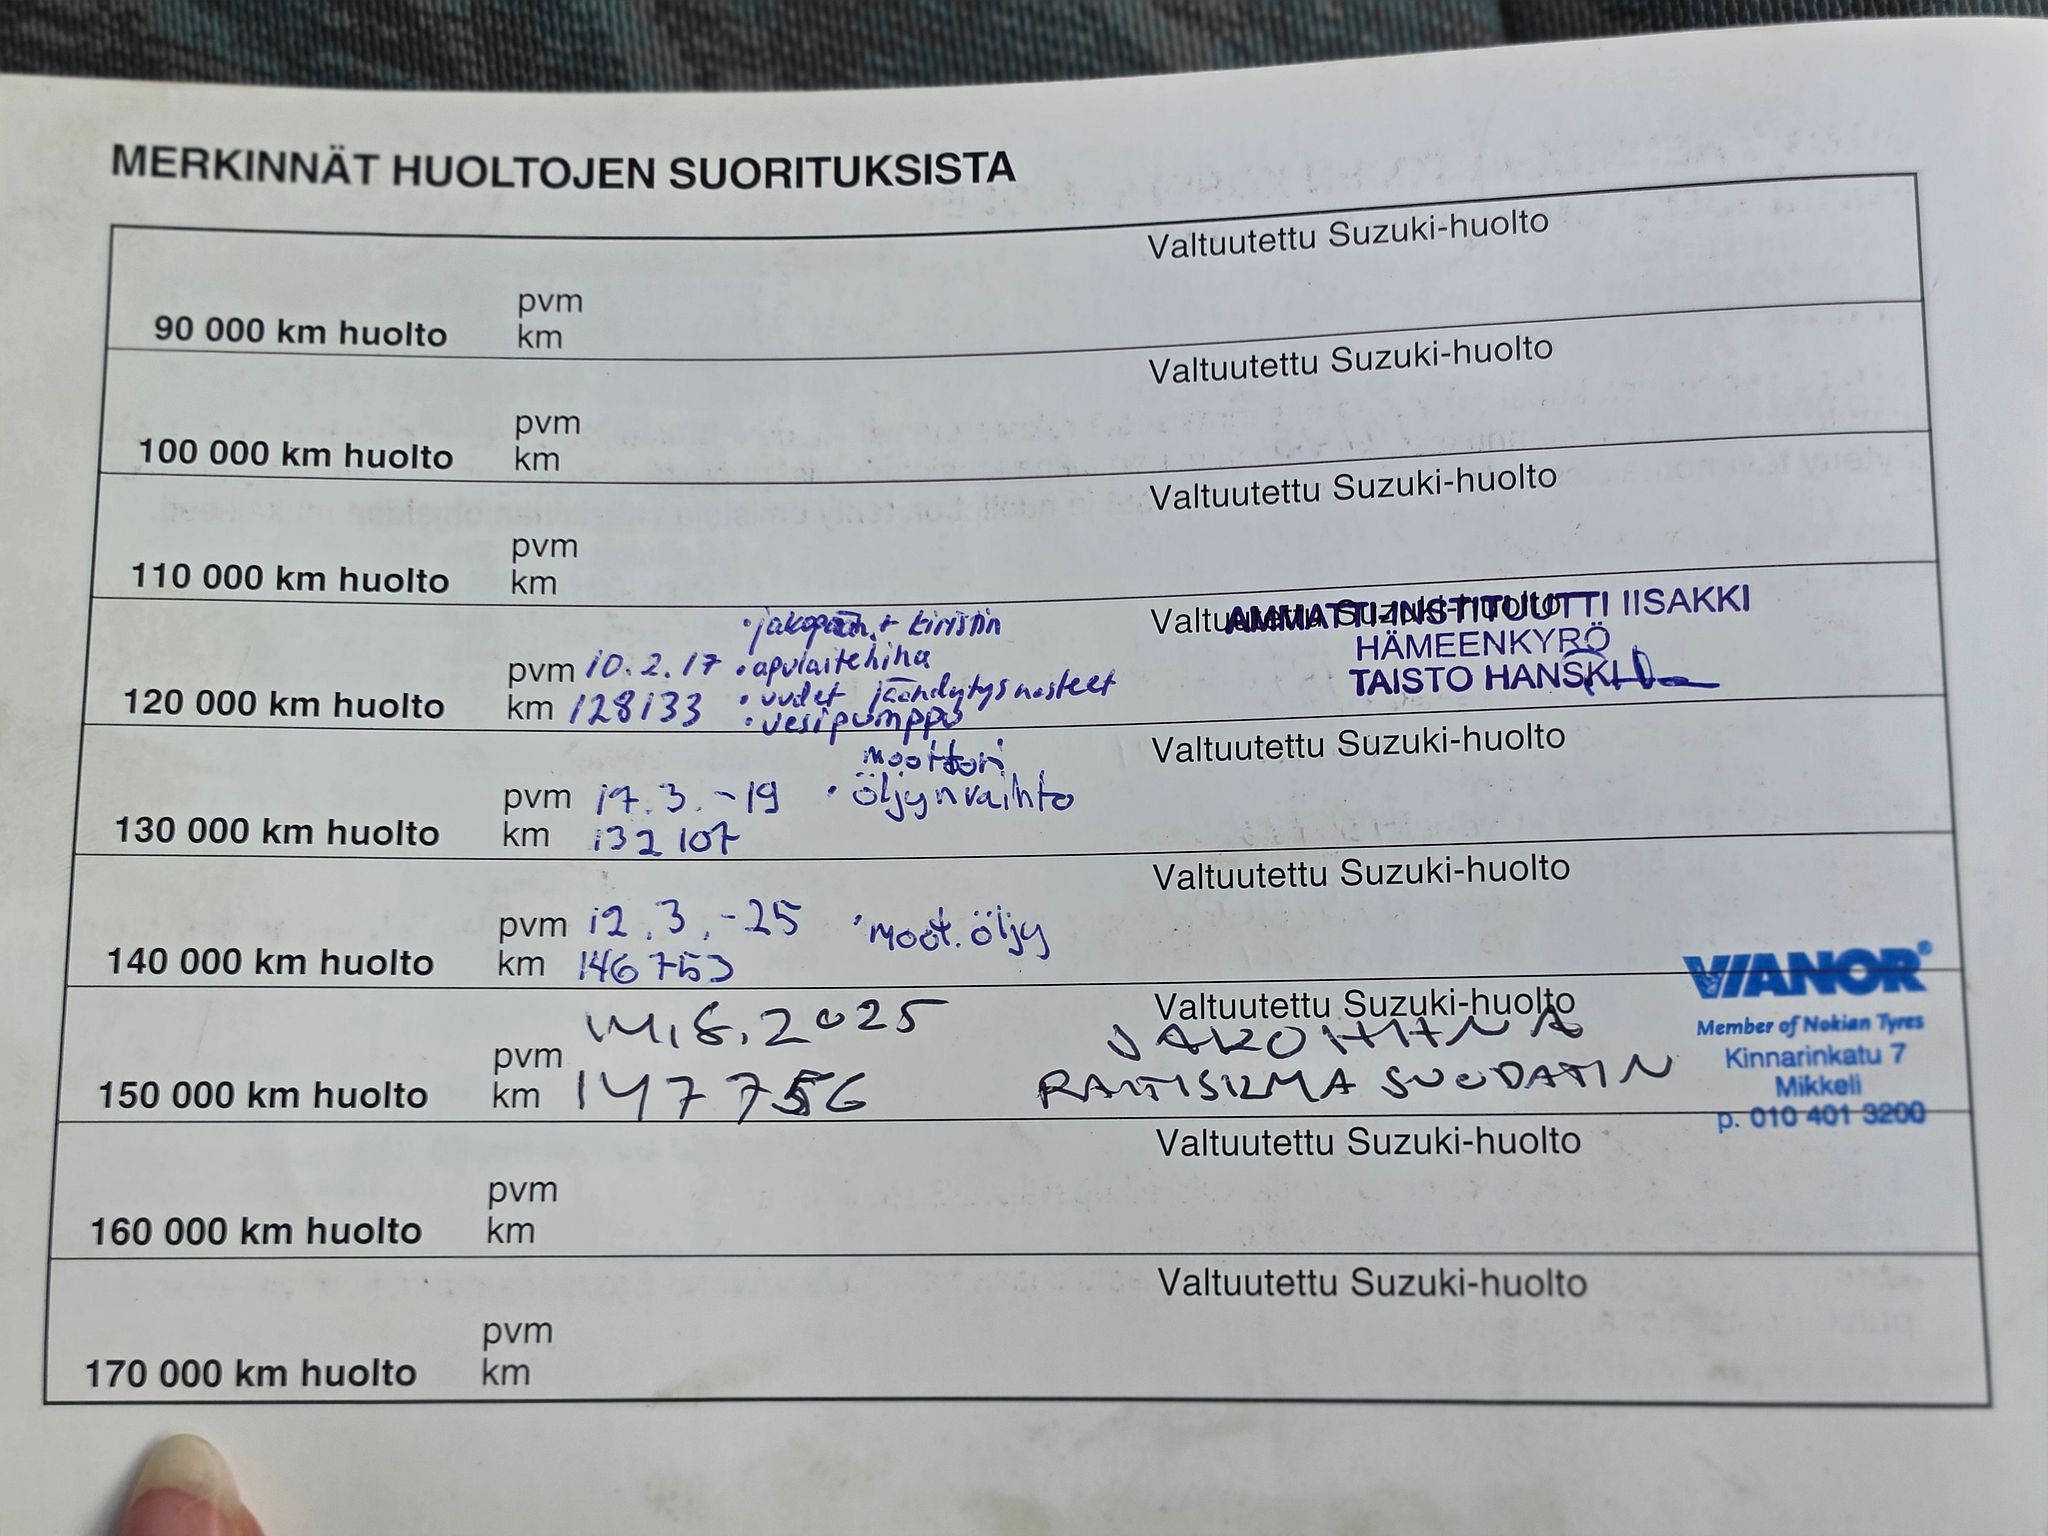 MERKINNÄT HUOLTOJEN SUORITUKSISTA
Valtuutettu Suzuki-huolto
pvm
90 000 km huolto km
Valtuutettu Suzuki-huolto
pvm
100 000 km huolto km
Valtuutettu Suzuki-huolto
pvm
110 000 km huolto km
Valtuutettu Suzuki-huolto
AMMATTI-INSTITUUTTI IISAKKI
HÄMEENKYRÖ
TAISTO HANSKI
• jakopään + kiristin
pvm 10.2.17 • apulaitehina
120 000 km huolto km 128133 • uudet jäähdytysnesteet
• vesipumppu
Valtuutettu Suzuki-huolto
moottori
pvm 17.3.-19 • öljynvaihto
130 000 km huolto km 132107
Valtuutettu Suzuki-huolto
pvm 12.3.-25 • moot. öljy
140 000 km huolto km 146753
VIANOR®
Member of Nokian Tyres
Kinnarinkatu 7
Mikkeli
p. 010 401 3200
Valtuutettu Suzuki-huolto
pvm 14.8.2025 JAKOHIHNA
150 000 km huolto km 147756 RAITISILMA SUODATIN
Valtuutettu Suzuki-huolto
pvm
160 000 km huolto km
Valtuutettu Suzuki-huolto
pvm
170 000 km huolto km